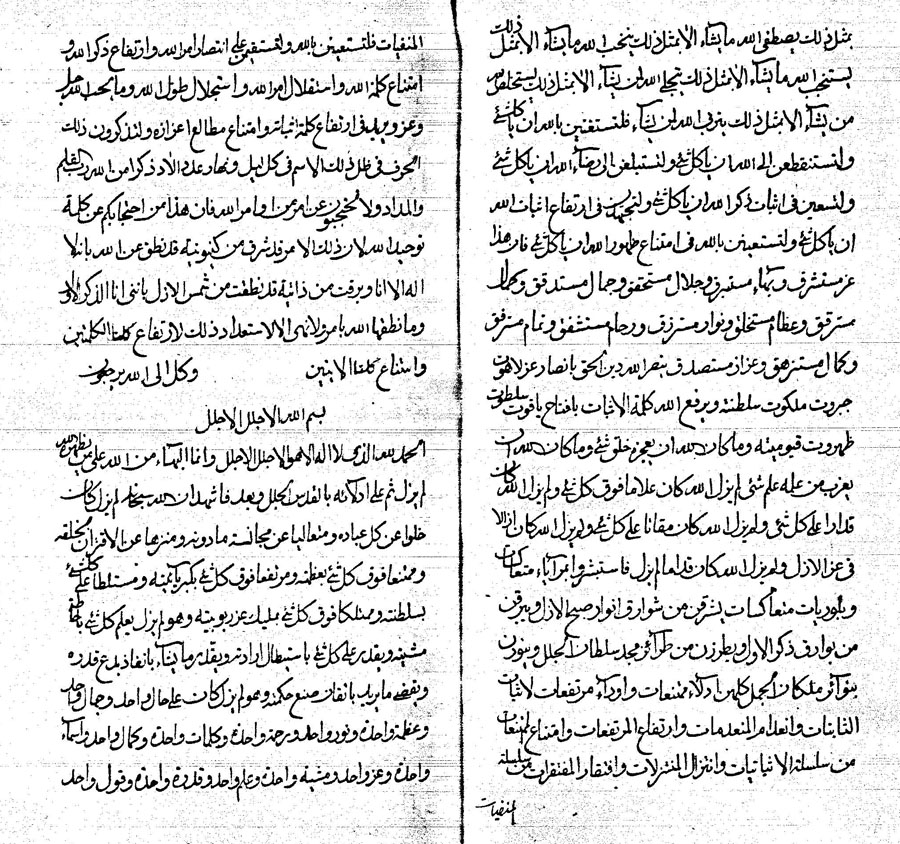 بمثل ذلك يصطفي الله ما يشاء الا بمثل ذلك ينتخب الله ما يشاء الا بمثل ذلك
يستنجب الله ما يشاء الا بمثل ذلك يتجلى الله لمن يشاء الا بمثل ذلك يستخلق الله
من يشاء الا بمثل ذلك الله لمن يشاء فلتستغنين بالله ان يا كلشئ
ولتستقطعن الى الله ان يا كلشئ ولتستبلغن الى رضاء الله ان يا كلشئ
ولتسعين في اثبات ذكر الله ان يا كلشئ ولتجهدن في ارتفاع اثبات الله
ان يا كلشئ ولتستعينن بالله في امتناع ظهور الله ان يا كلشئ فان هذا
عز مستشرق وبهاء مستبرق وجلال مستحقق وجمال مستدقق وكمال
مسترقق وعظام مستخلق ونوار مسترزق ورحام مستشفق وتمام مسترفق
وكمال مستزهق وعزاز مستصدق ينصر الله دين الحق بانصار عز لاهوت
جبروت ملكوت سلطنته ويرفع الله كلمة الاثبات بافتاح ياقوت سلطوت
ظهروت قيوميته وما كان لله ان يعجزه خلق شئ وما كان لله ان
يعزب من علمه علم شئ لم يزل الله كان علاما فوق كلشئ ولم يزل الله كان
قدارا على كلشئ ولم يزل الله كان مقتانا على كلشئ ولم يزل الله كان ازالا
في عز الازل ولم يزل الله كان قداما لم يزل فاستبشروا بمرآياء متعاكسات
وبلوريات متعاكسات يشرقن من شوارق انوار صبح الازل ويبرقن
من بوارق ذكر الاول ويطرزن من طرائز مجد سلطان الجلل وينوذن
ملكان الجمل كلهن ادلاء ممتنعات واوداء مرتفعات لاثبات
الثابتات وانعدام المنعدمات وارتفاع المرتفعات وامتناع الممتنعات
من سلسلة الاثباتيات وانتزال المنتزلات وافتقار المفتقرات من سلسلة
المنفيات
المنفيات فلتستعينن بالله ولتستقيمن على انتصار امر الله وارتفاع ذكر الله و
امتناع كلمة الله واستقلال امر الله واستجلال طول الله وما يحب الله جل
وعز ويريد في ارتفاع كلمة اثباته وامتناع مطالع اعزازه ولتذكرون ذلك
الحرف في ظل ذلك الاسم في كل ليل ونهار عدد الاد ذكرا من الله القلم
والمداد ولا تحتجبون عن امر من اوامر الله فان هذا من احتجابكم عن كلمة
توحيد الله لان ذلك الامر قد شرق من كينونية قد نطق عن الله بانه لا
اله الا انا وبرقت من ذاتية قد نطقت من شمس الازل بانني انا الذكر الاول
وما نطقها الله بامر ولا نهى الا لاستعداد ذلك لارتفاع كلمتا الكلمتين
وامتناع كلمتا الاثنين وكل الى الله يرجعون
بسم الله الاجلل الاجلل
الحمد لله الذي لا اله الا هو الاجلل الاجلل وانما البهاء من الله على من يظهره الله
لم يزل ثم على ادلائه بالقدس الجلل وبعد فاشهد ان الله سبحانه لم يزل كان
خلوا عن كل عباده ومتعاليا عن مجانسة ما دونه ومنزها عن الاقتران بخلقه
وممتنعا فوق كلشئ بعظمته ومرتفعا فوق كلشئ بكبريائيته ومستلطا على كلشئ
بسلطنته وممتلكا فوق كلشئ بمليك عز ربوبيته وهو لم يزل يعلم كلشئ
مشيته ويقدر على كلشئ باستبطال ارادته ويقدر ما يشاء بانفاذ بدع قدره
ويقضي ما يريد باتقان صنع حكمته وهو لم يزل كان على حال واحد وجمال واحد
وعظمة واحدة ونور واحد ورحمة واحدة وكلمات واحدة وكمال واحد واسماء
واحدة وعز واحد ومشية واحدة وعلم واحد وقدرة واحدة وقول واحد